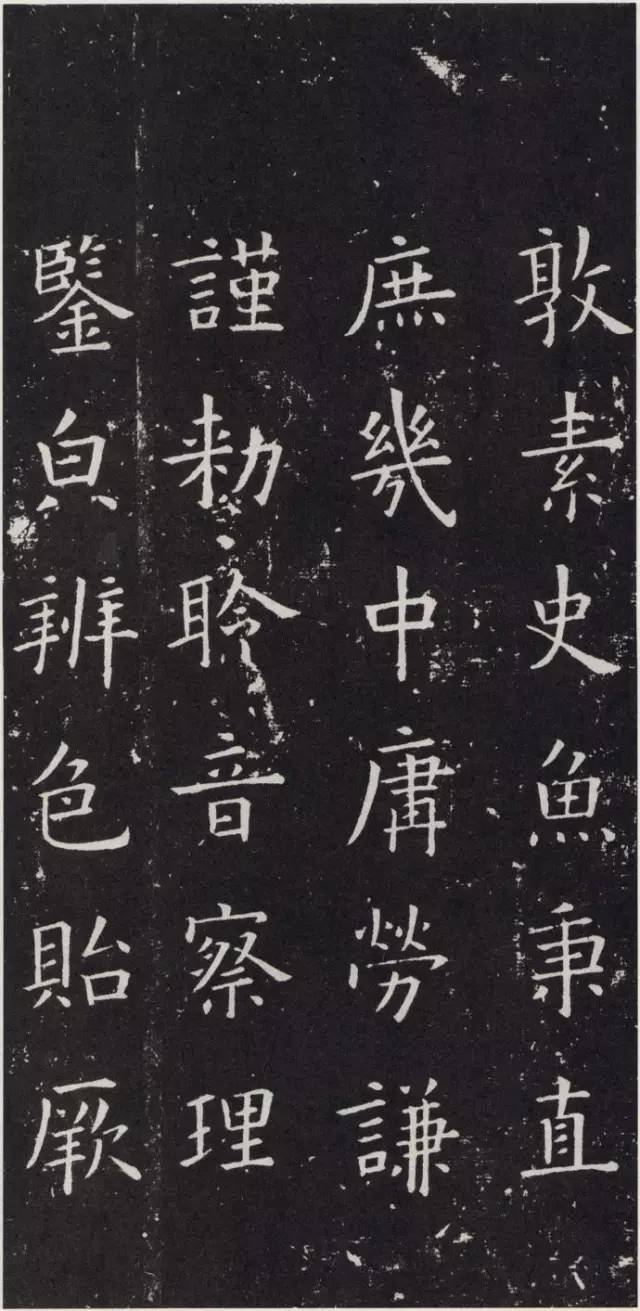 敦素史魚秉直
庶幾中庸勞謙
謹勑聆音察理
鑒皃辨色貽厥